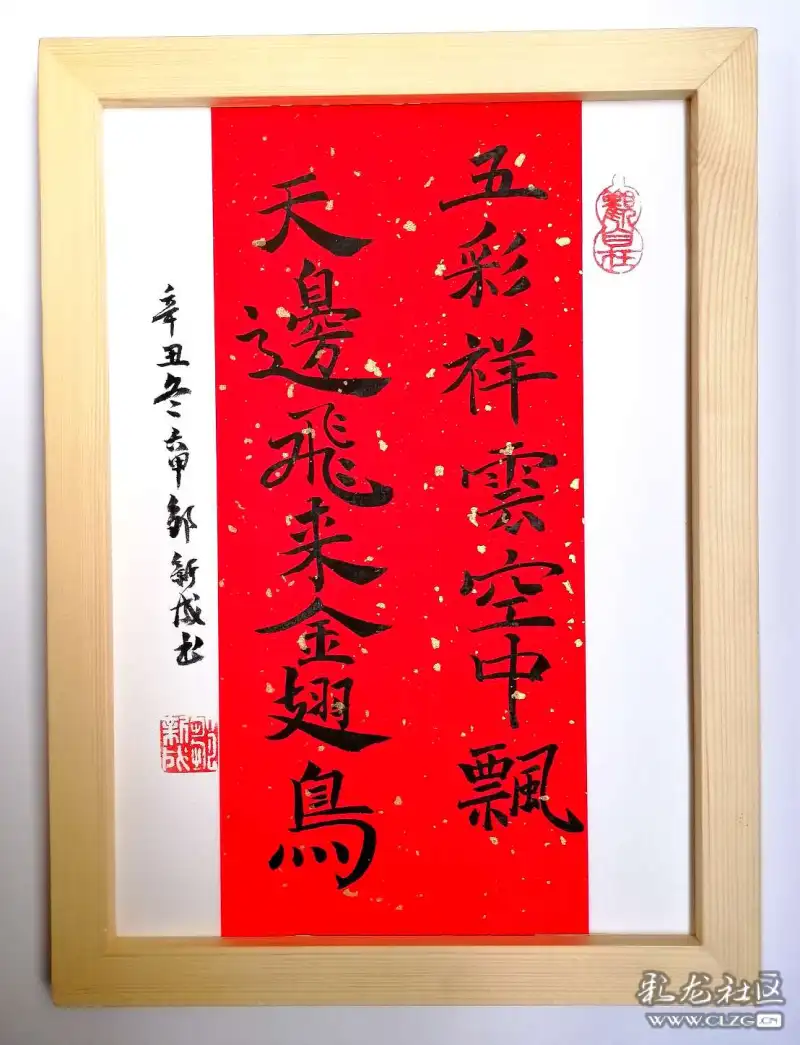 五彩祥雲空中飄
天邊飛来金翅鳥
辛丑冬六甲鄒新成书
觀自在
新成
彩龙社区
WWW.CLZG.CN